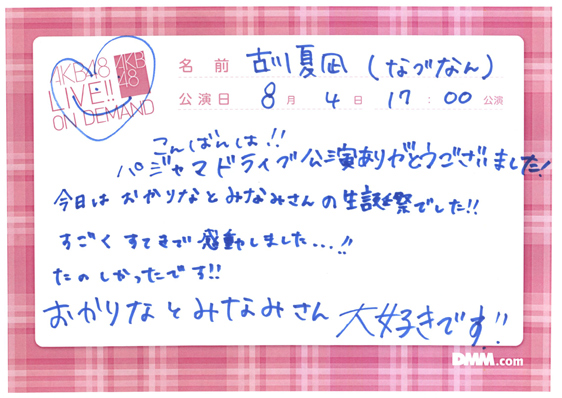 AKB48
LIVE!!
ON DEMAND
AKB
48
名前 古川夏凪 (なづなん)
公演日 8月 4日 17:00 公演
こんばんは!!
パジャマドライブ公演ありがとうございました!
今日は おかりなと みなみさんの生誕祭でした!!
すごく すてきで 感動しました...!!
たのしかったです!!
おかりなとみなみさん 大好きです!!
DMM.com